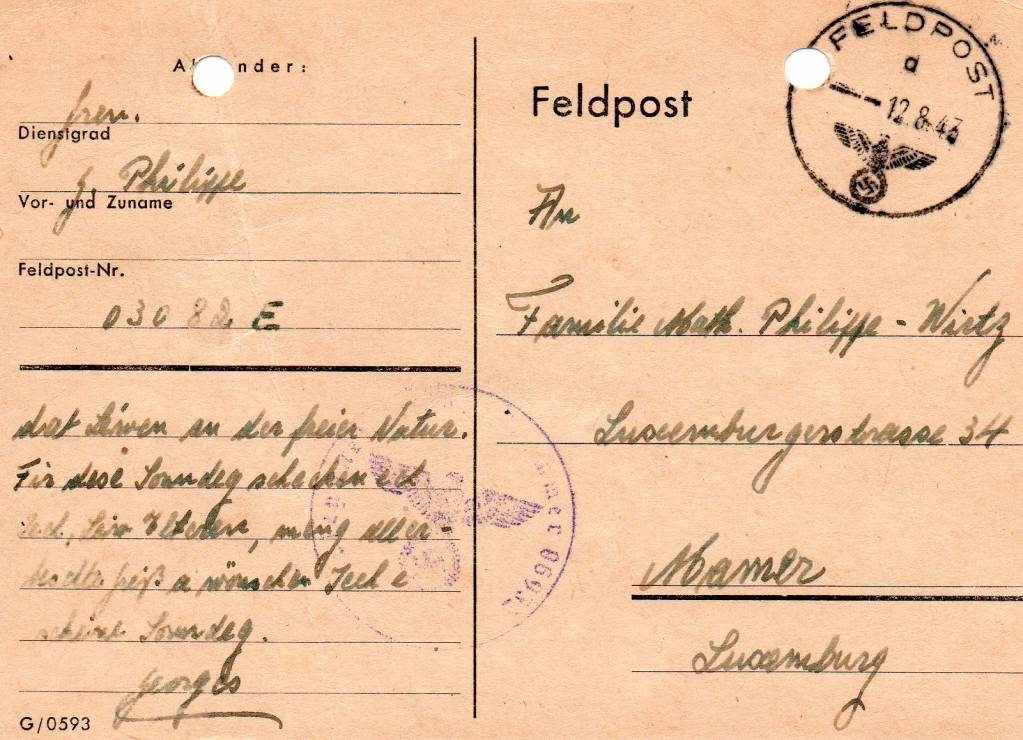 Absender:
Gren.
Dienstgrad
G. Philippe
Vor- und Zuname
Feldpost-Nr.
03082 E
dat Liewen an der freier Natur.
Fir dese Sonndeg schecken ech
Iech, Elteren, meng aller-
beschte a wönschen Iech e
schéine Sonndeg.
Gorges
G/0593
Feldpost
FELDPOST
a
12.8.43
An
Familie Math. Philippe-Wirtz
Luxemburgerstrasse 34
Mamer
Luxemburg